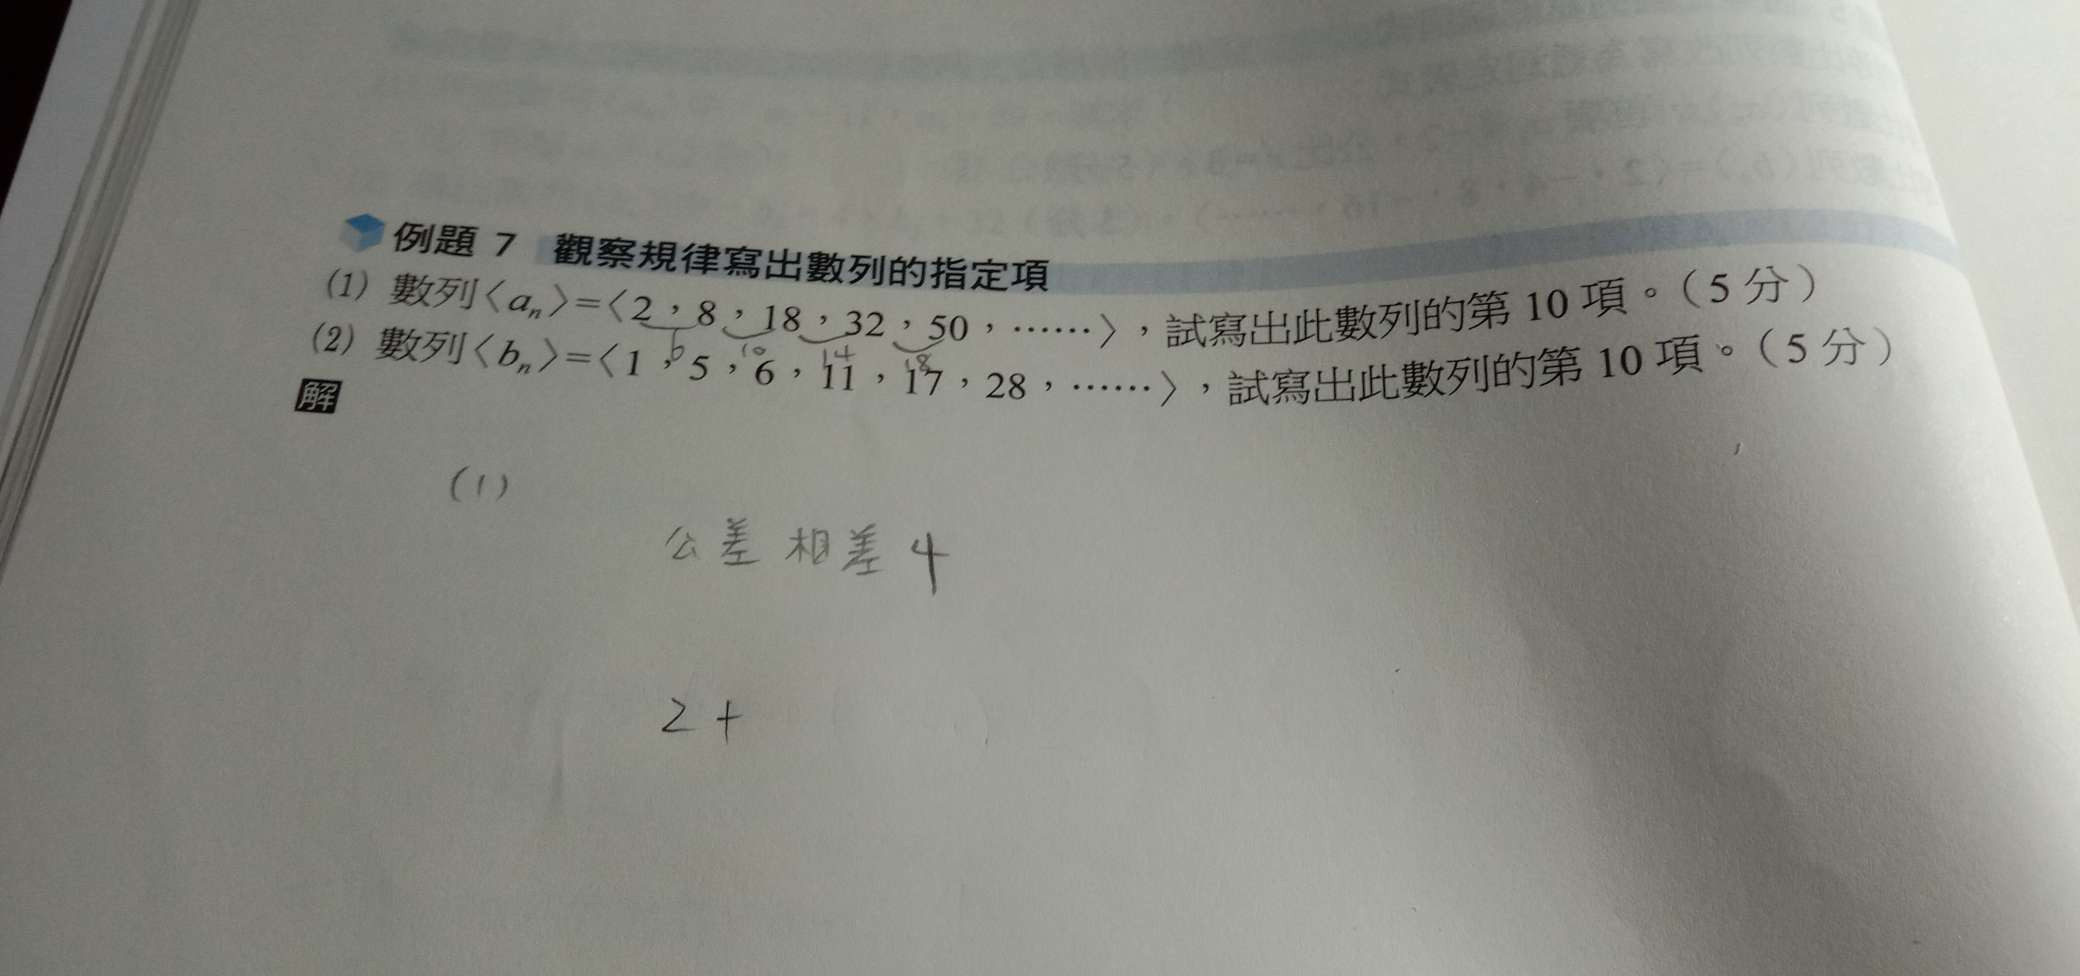 例題 7 觀察規律寫出數列的指定項
(1) 數列〈aₙ〉=〈2，8，18，32，50，……〉，試寫出此數列的第 10 項。（5 分）
6 10 14 18
(2) 數列〈bₙ〉=〈1，5，6，11，17，28，……〉，試寫出此數列的第 10 項。（5 分）
解
(1)
公差 相差 4
2 +